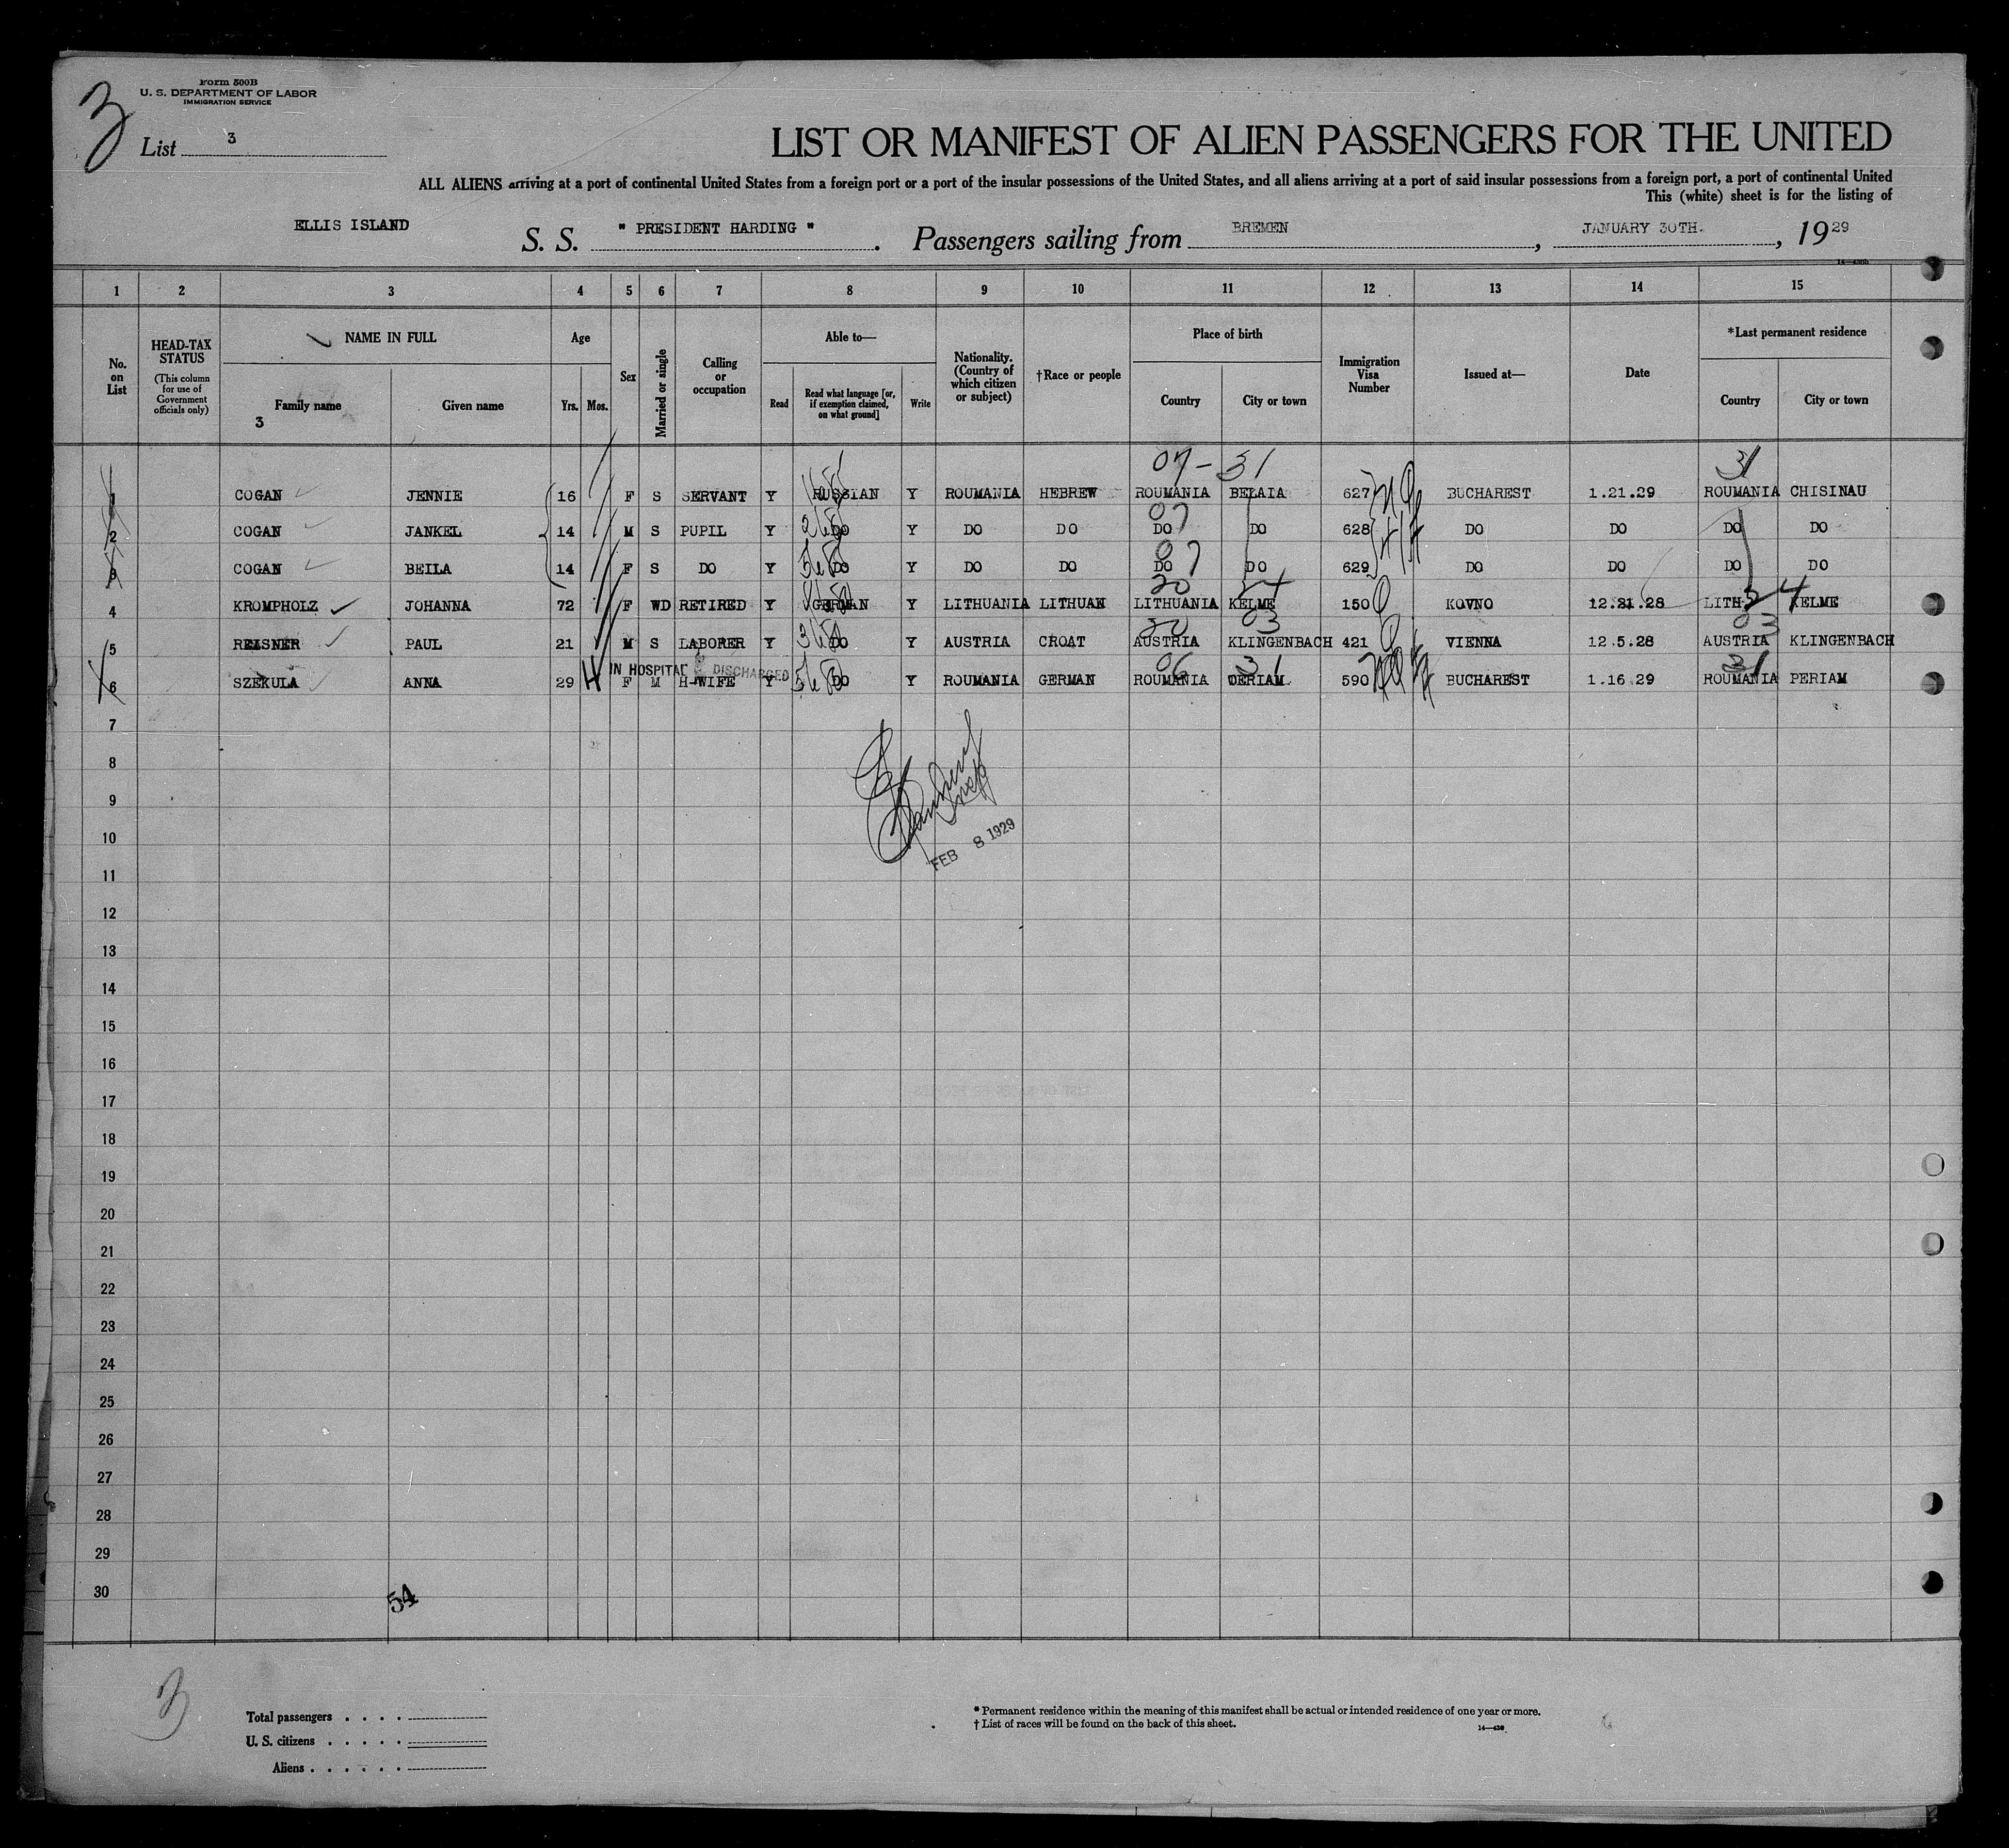 Form 500B
U. S. DEPARTMENT OF LABOR
IMMIGRATION SERVICE
3
List 3
LIST OR MANIFEST OF ALIEN PASSENGERS FOR THE UNITED
ALL ALIENS arriving at a port of continental United States from a foreign port or a port of the insular possessions of the United States, and all aliens arriving at a port of said insular possessions from a foreign port, a port of continental United
This (white) sheet is for the listing of
ELLIS ISLAND S. S. " PRESIDENT HARDING ". Passengers sailing from BREMEN, JANUARY 30TH., 1929
1 2 3 4 5 6 7 8 9 10 11 12 13 14 15
No. on List
HEAD-TAX STATUS (This column for use of Government officials only)
NAME IN FULL
Family name Given name
3
Age
Yrs. Mos.
Sex
Married or single
Calling or occupation
Able to—
Read Read what language [or, if exemption claimed, on what ground] Write
Nationality. (Country of which citizen or subject)
†Race or people
Place of birth
Country City or town
Immigration Visa Number
Issued at—
Date
*Last permanent residence
Country City or town
07 - 31 31
1 COGAN JENNIE 16 F S SERVANT Y RUSSIAN Y ROUMANIA HEBREW ROUMANIA BELAIA 627 BUCHAREST 1.21.29 ROUMANIA CHISINAU
07
2 COGAN JANKEL 14 M S PUPIL Y DO Y DO DO DO DO 628 DO DO DO DO
07
3 COGAN BEILA 14 F S DO Y DO Y DO DO DO DO 629 DO DO DO DO
20 24 24
4 KROMPHOLZ JOHANNA 72 F WD RETIRED Y GERMAN Y LITHUANIA LITHUAN LITHUANIA KELME 150 KOVNO 12.21.28 LITH KELME
20 03 03
5 REISNER PAUL 21 M S LABORER Y DO Y AUSTRIA CROAT AUSTRIA KLINGENBACH 421 VIENNA 12.5.28 AUSTRIA KLINGENBACH
IN HOSPITAL DISCHARGED 06 31 31
6 SZEKULA ANNA 29 F M H-WIFE Y DO Y ROUMANIA GERMAN ROUMANIA PERIAM 590 BUCHAREST 1.16.29 ROUMANIA PERIAM
7
8
9
10
FEB 8 1929
11
12
13
14
15
16
17
18
19
20
21
22
23
24
25
26
27
28
29
30
54
3
Total passengers . . . .
U. S. citizens . . . . .
Aliens . . . . . .
* Permanent residence within the meaning of this manifest shall be actual or intended residence of one year or more.
† List of races will be found on the back of this sheet.
14—430